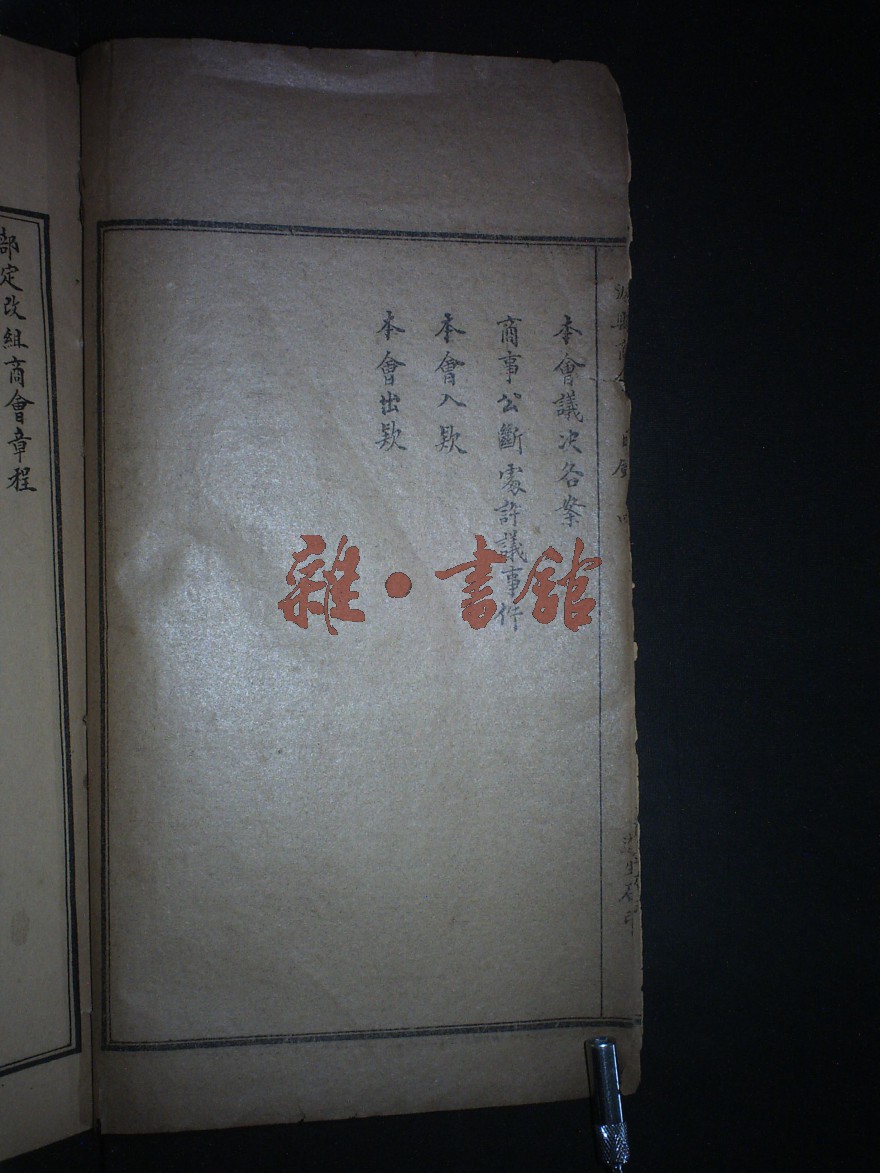 本會議决各案
商事公斷處評議事件
本會入欵
本會出欵
部定改組商會章程
雜·書館